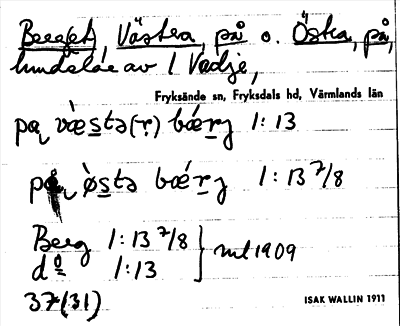 Berget, Västra, på o. Östra, på,
hundelar av 1 Vadje,
Fryksände sn, Fryksdals hd, Värmlands län
pɑ væ̀stə(r) bǽrj 1:13
på ø̀stə bǽrj 1:13 7/8
Berg 1:13 7/8 } ml 1909
do 1:13
37(31)
ISAK WALLIN 1911